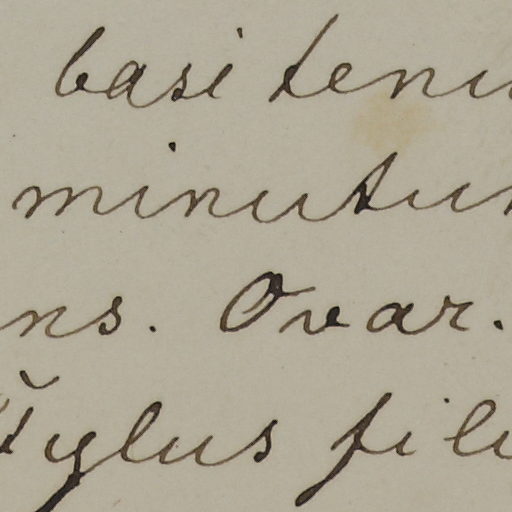 basi tenu
minutum
ns. Ovar.
tylus fili